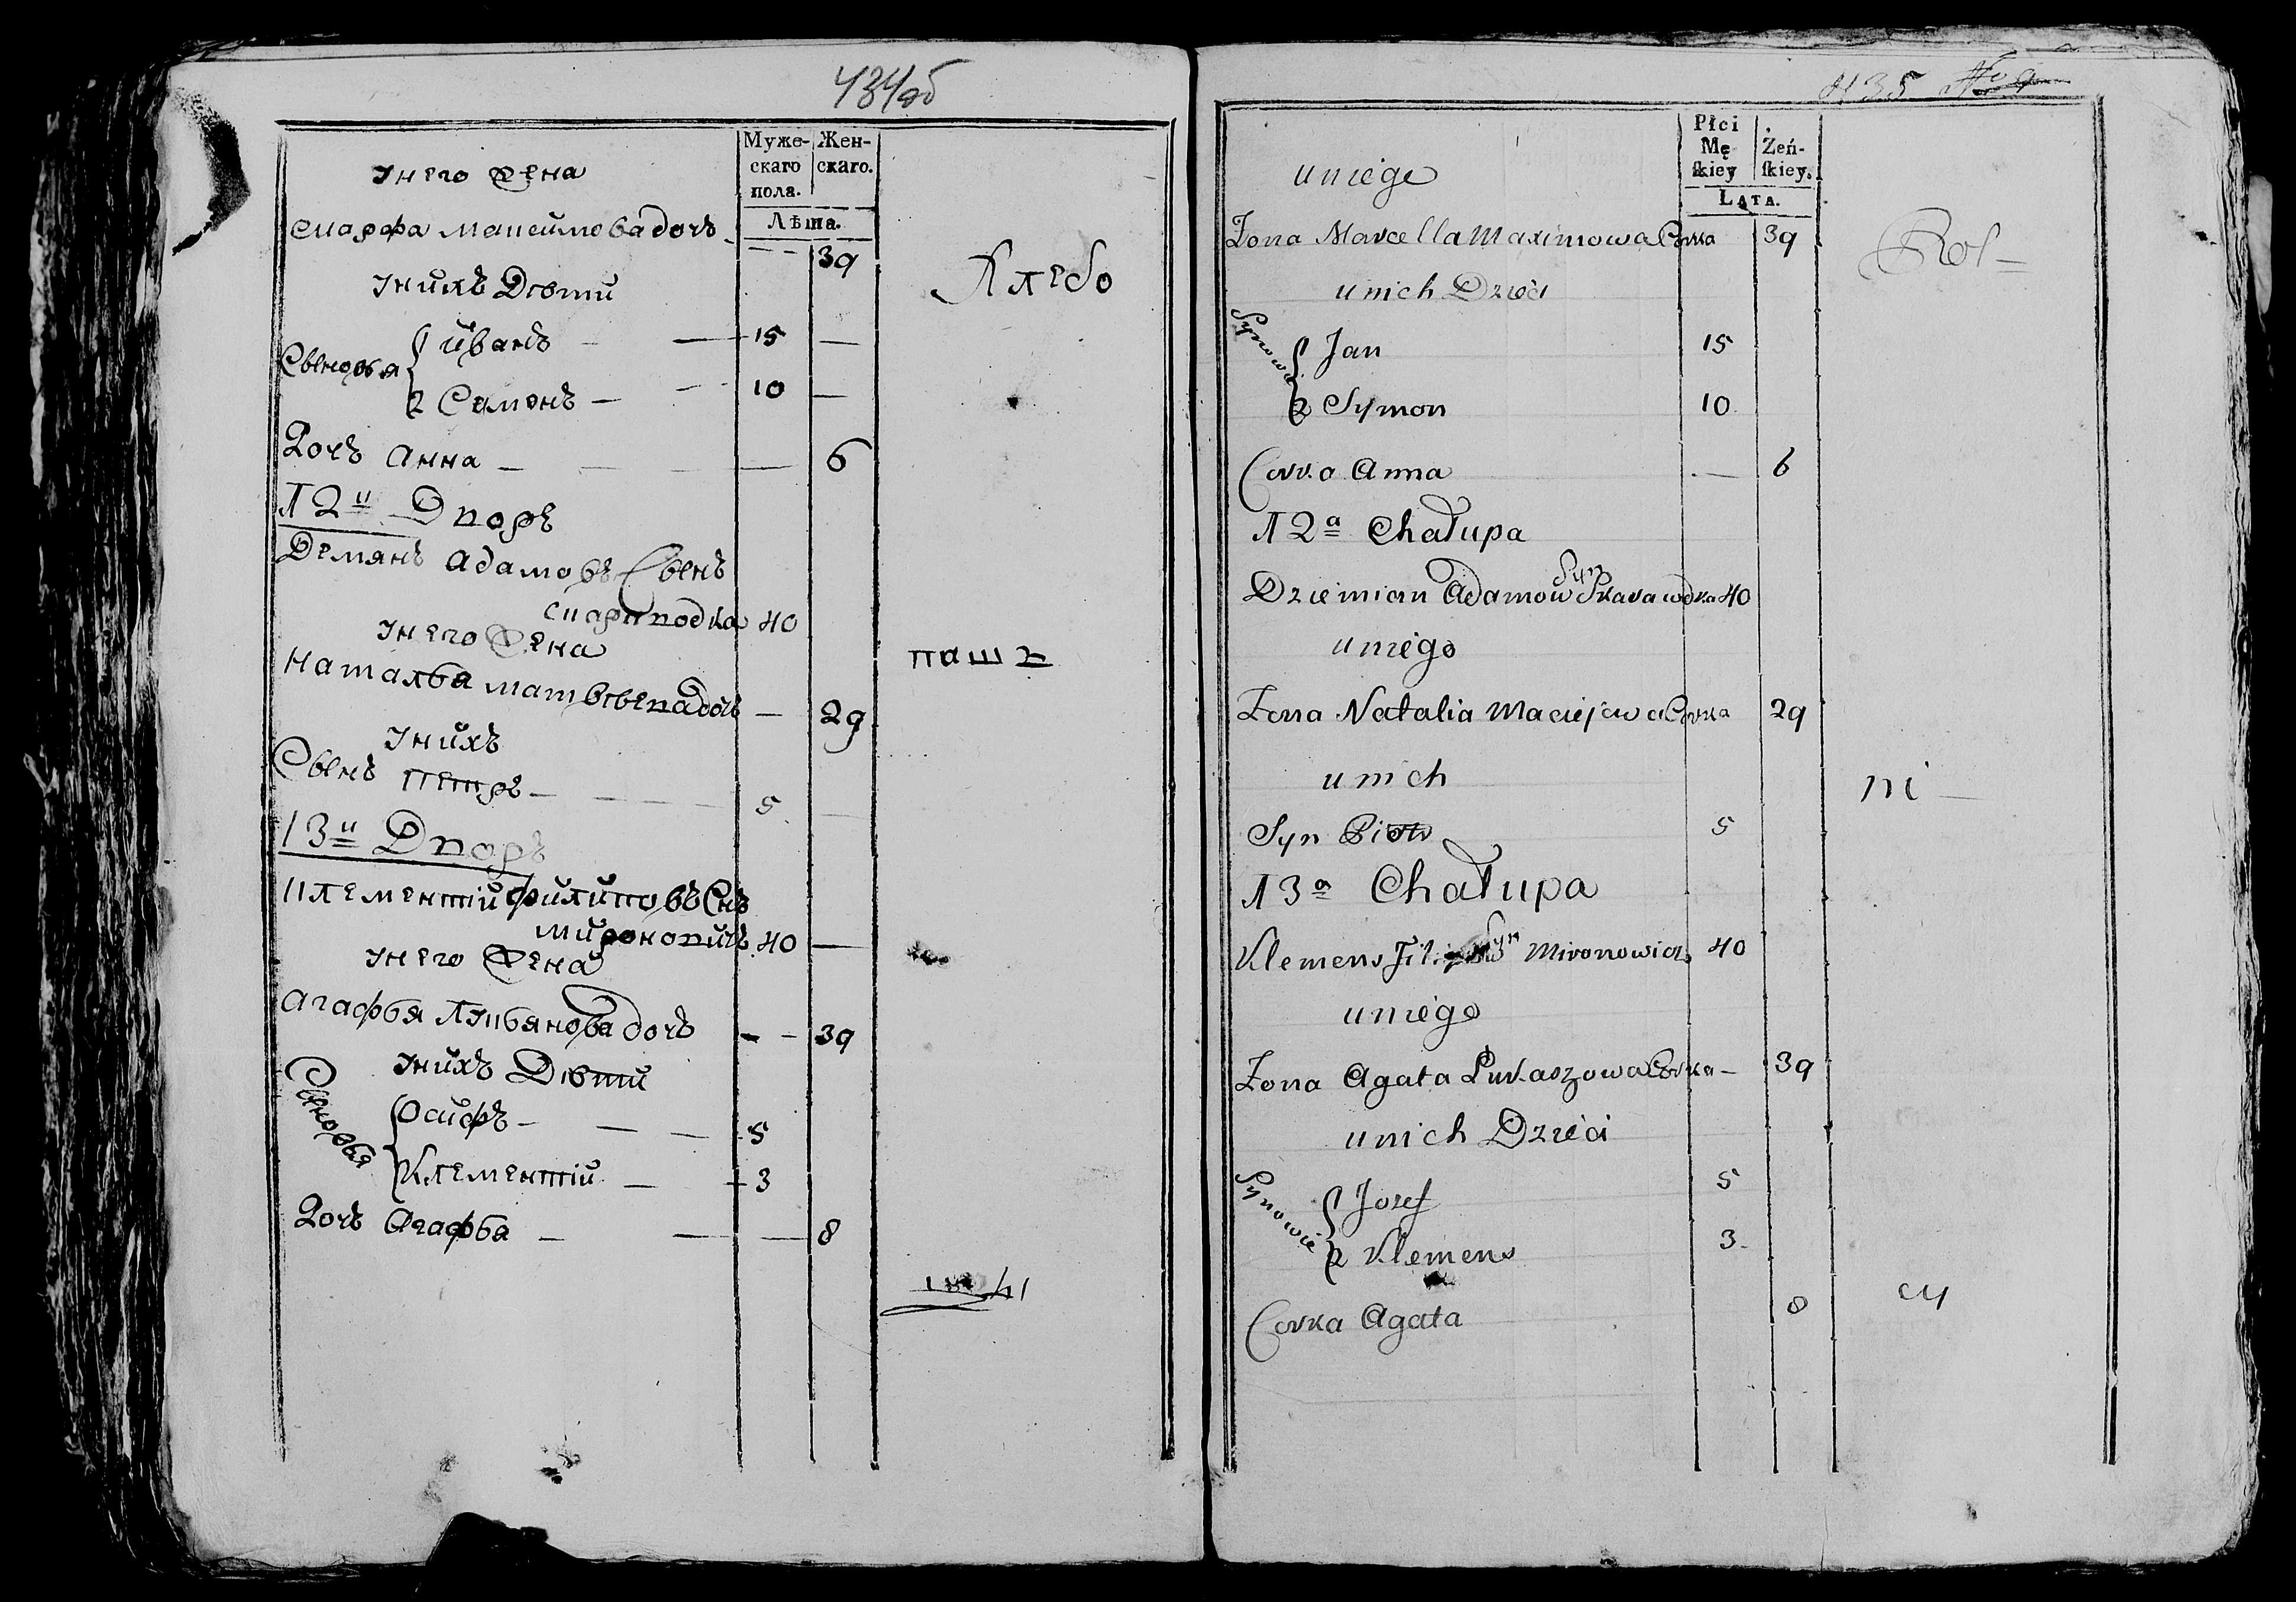 434об
Муже-
скаго
пола.
Жен-
скаго.
Лѣта.
Унего Жена
Марфа Максимова дочь - 39
Хлебо
Унихъ Дѣти
Сыновья
1 Иванъ - 15 -
2 Семенъ - 10 -
Дочь Анна - 6
12й Дворъ
Демянъ Адамовъ Сынъ
Скараводка 40
Унего Жена
паш
Наталья Матвѣева дочь - 29
Унихъ
Сынъ Петръ - 5
13й Дворъ
Клементій Филиповъ Снъ
Мироновичъ 40 -
Унего Жена
Агафья Лукьянова дочь - 39
Унихъ Дѣти
Сыновья
Осифъ - 5
Клементій - 3
Дочь Агафья - 8
435
Płci
Mę
skiey
Żeń-
skiey.
LATA.
uniego
Zona Marcella Maximowa Corka 39
Rol-
unich Dzieci
Synowie
1 Jan 15
2 Symon 10
Corka Anna - 6
12a Chałupa
Dziemian Adamow Syn Skarawodka 40
uniego
Zona Natalia Maciejowa Corka 29
unich
ni-
Syn Piotr 5
13a Chałupa
Klemens Filipow Syn Mironowicz 40
uniego
Zona Agata Łukaszowa Corka - 39
unich Dzieci
Synowie
1 Jozef 5
2 Klemens 3
cy
Corka Agata 8